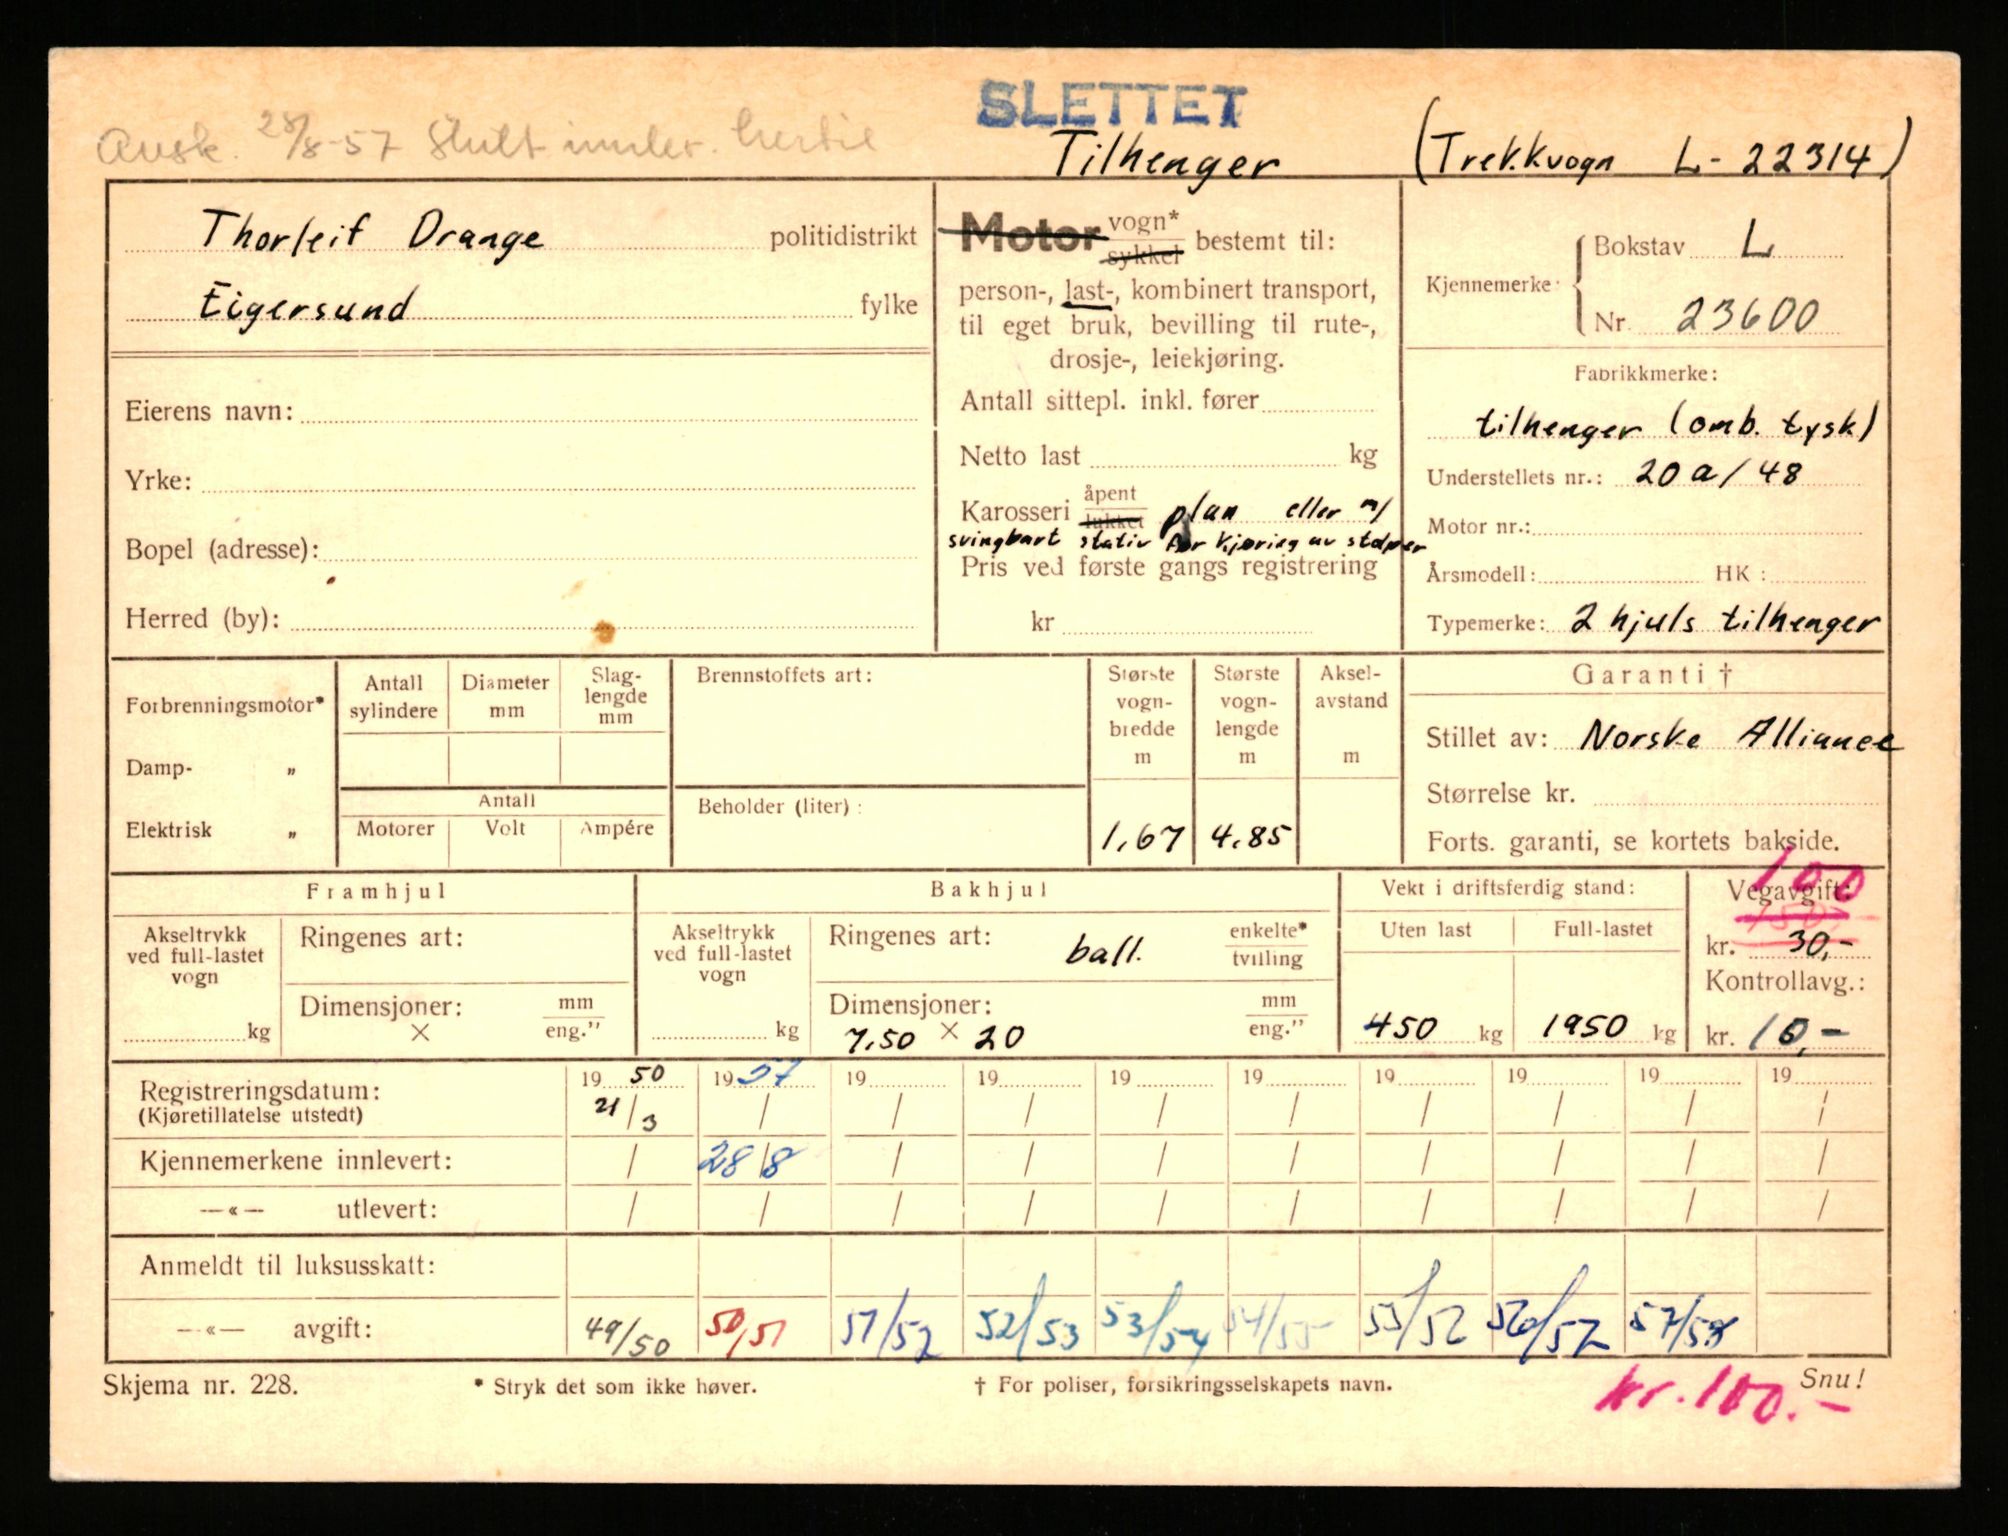 SLETTET
28/8-57
Tilhenger (Trekkvogn L-22314)
Thorleif Orange politidistrikt
Eigersund fylke
Eierens navn:
Yrke:
Bopel (adresse):
Herred (by):
Motor vogn* sykkel bestemt til:
person-, last-, kombinert transport,
til eget bruk, bevilling til rute-,
drosje-, leiekjøring.
Antall sittepl. inkl. fører
Netto last kg
Karosseri åpent lukket plan eller m/
svingbart stativ for kjøring av stolper
Pris ved første gangs registrering
kr
Kjennemerke: Bokstav L
Nr. 23600
Fabrikkmerke:
tilhenger (omb. tysk)
Understellets nr.: 20a/48
Motor nr.:
Årsmodell: HK:
Typemerke: 2 hjuls tilhenger
Forbrenningsmotor*
Damp- „
Elektrisk „
Antall sylindere
Diameter mm
Slag-lengde mm
Antall
Motorer Volt Ampére
Brennstoffets art:
Beholder (liter):
Største vogn-bredde m
1,67
Største vogn-lengde m
4.85
Aksel-avstand m
Garanti †
Stillet av: Norske Alliance
Størrelse kr.
Forts. garanti, se kortets bakside.
Framhjul
Akseltrykk ved full-lastet vogn
kg
Ringenes art:
Dimensjoner: mm eng."
×
Bakhjul
Akseltrykk ved full-lastet vogn
kg
Ringenes art: ball. enkelte* tvilling
Dimensjoner: mm eng."
7.50 × 20
Vekt i driftsferdig stand:
Uten last Full-lastet
450 kg 1950 kg
100
Vegavgift:
150,-
kr. 30,-
Kontrollavg.:
kr. 10,-
Registreringsdatum: 19 50 19 57 19 19 19 19 19 19 19 19
(Kjøretillatelse utstedt) 21/3 / / / / / / / / /
Kjennemerkene innlevert: / 28/8 / / / / / / / /
—«— utlevert: / / / / / / / / / /
Anmeldt til luksusskatt:
—«— avgift: 49/50 50/51 51/52 52/53 53/54 54/55 55/56 56/57 57/58
Skjema nr. 228. * Stryk det som ikke høver. † For poliser, forsikringsselskapets navn. Snu!
kr. 100.-